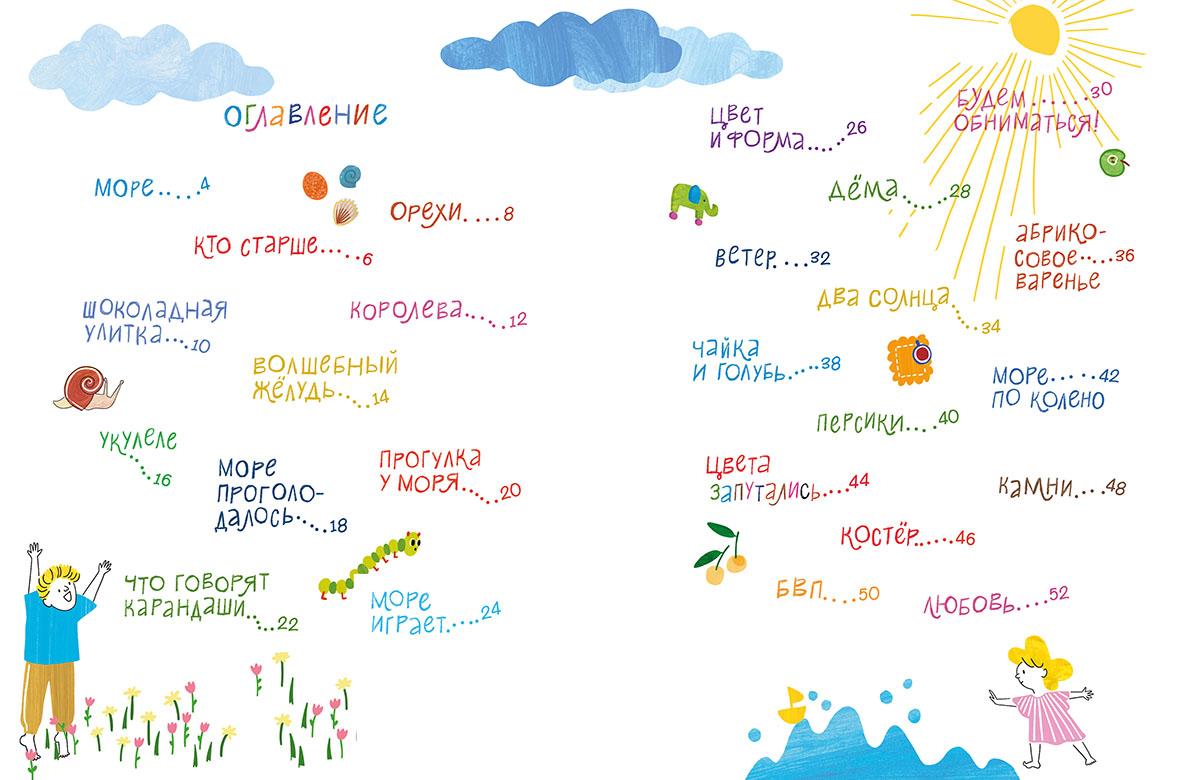 Оглавление
Море.....4
Орехи....8
Кто старше.....6
Шоколадная
улитка....10
Королева.....12
Волшебный
жёлудь.....14
Укулеле
.....16
Море
проголо-
далось.....18
Прогулка
у моря.....20
Что говорят
карандаши.....22
Море
играет.....24
Цвет
и форма.....26
Будем......30
обниматься!
Дёма.....28
Абрико-
совое.....36
варенье
Ветер....32
Два солнца
.....34
Чайка
и голубь.....38
Море.....42
по колено
Персики....40
Цвета
запутались....44
Камни....48
Костёр.....46
БВП....50
Любовь....52